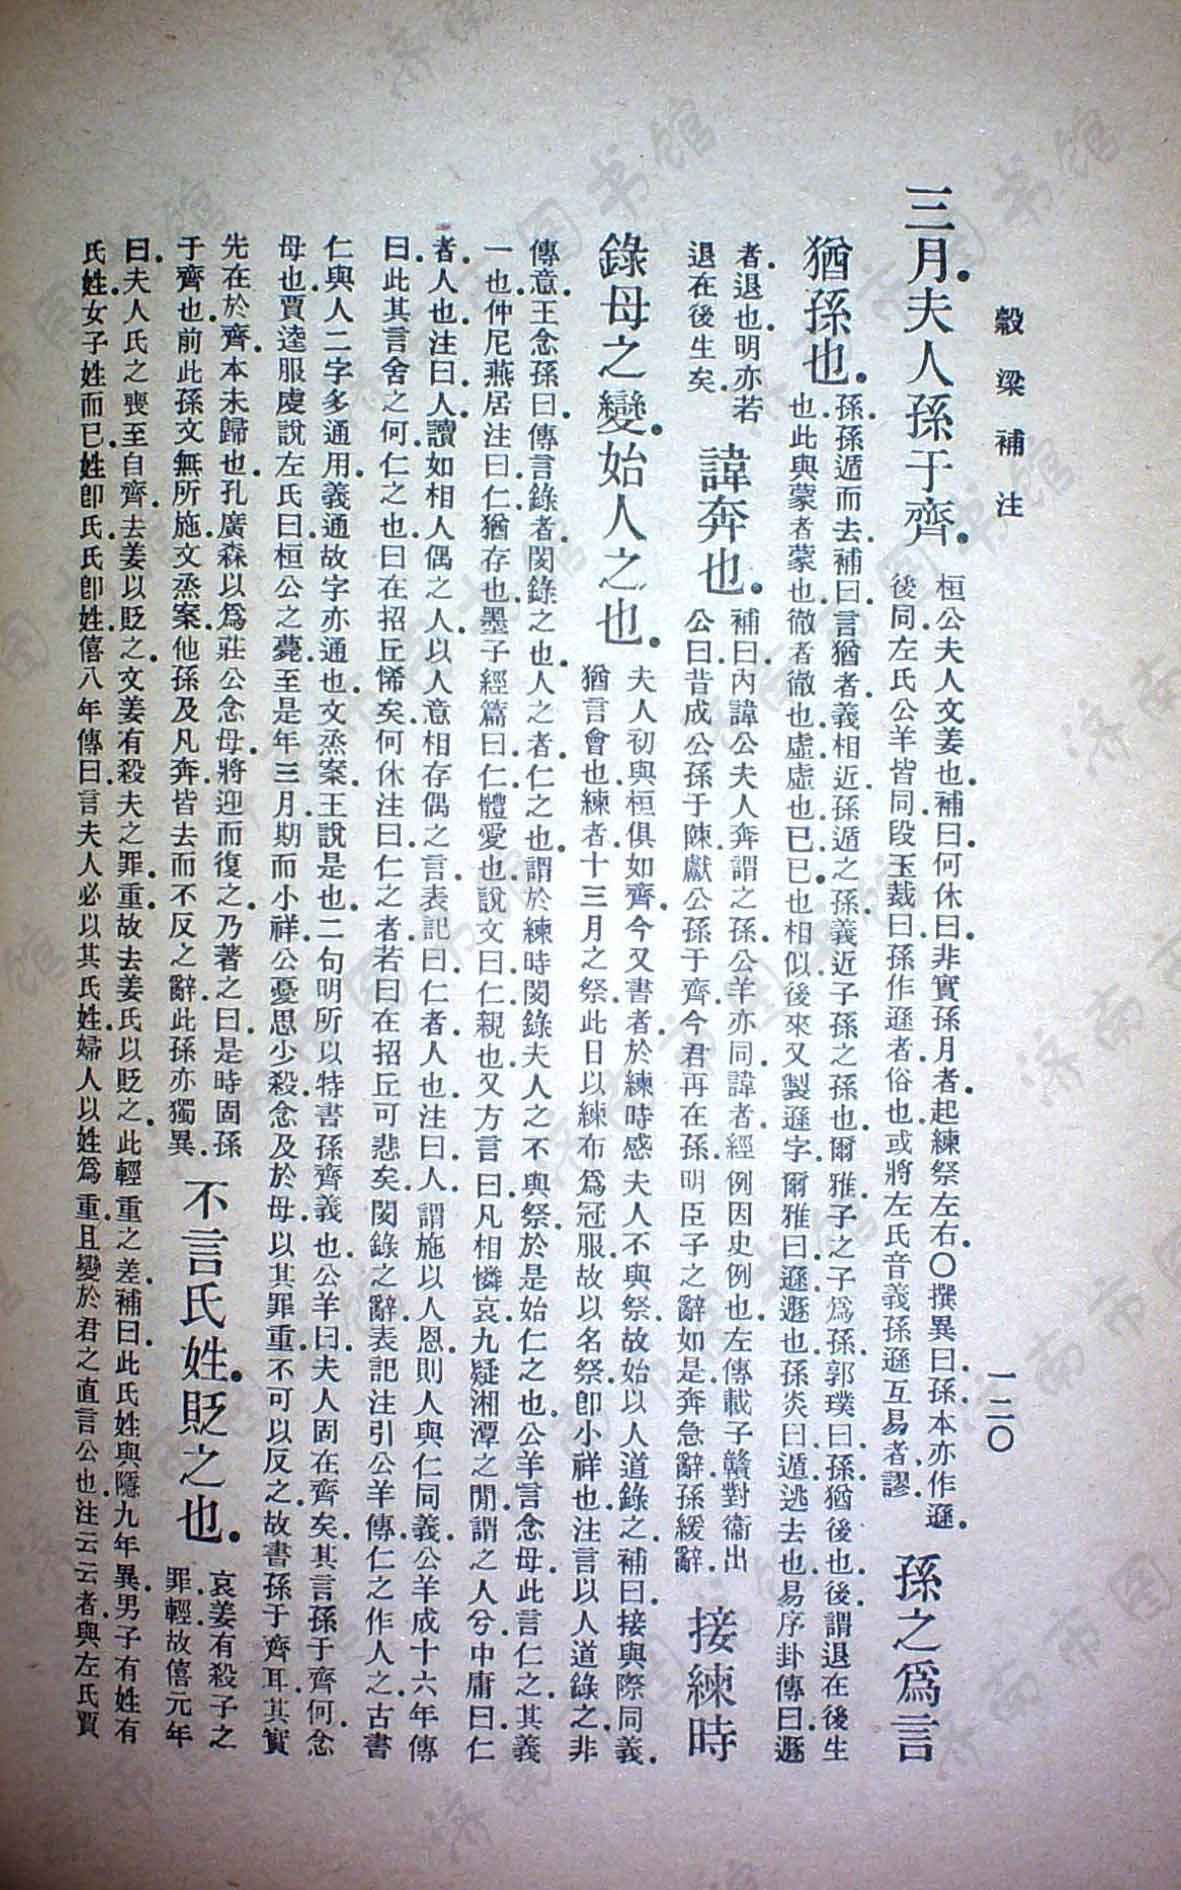 穀梁補注
一二〇
三月。夫人孫于齊。
桓公夫人文姜也。補曰。何休曰。非實孫月者。起練祭左右。〇撰異曰。孫本亦作遜。
後同。左氏公羊皆同。段玉裁曰。孫作遜者。俗也。或將左氏音義孫遜互易者。謬。
孫之爲言
猶孫也。
孫。孫遁而去。補曰。言猶者。義相近。孫遁之孫。義近子孫之孫也。爾雅。子之子爲孫。郭璞曰。孫猶後也。後謂退在後生
也。此與蒙者蒙也。徹者徹也。虛虛也。已已也相似。後來又製遜字。爾雅曰。遜。遯也。孫炎曰。遁。逃去也。易序卦傳曰。遯
者。退也。明亦若
退在後生矣。
諱奔也。
補曰。內諱公夫人奔謂之孫。公羊亦同。諱者。經例因史例也。左傳載子贛對衞出
公曰。昔成公孫于陳。獻公孫于齊。今君再在孫。明臣子之辭如是。奔急辭。孫緩辭。
接練時
錄母之變。始人之也。
夫人初與桓俱如齊。今又書者。於練時感夫人不與祭。故始以人道錄之。補曰。接與際同義。
猶言會也。練者。十三月之祭。此日以練布爲冠服。故以名祭。卽小祥也。注言以人道錄之。非
傳意。王念孫曰。傳言錄者。閔錄之也。人之者。仁之也。謂於練時閔錄夫人之不與祭。於是始仁之也。公羊言念母。此言仁之。其義
一也。仲尼燕居注曰。仁猶存也。墨子經篇曰。仁。體愛也。說文曰。仁。親也。又方言曰。凡相憐哀。九疑湘潭之閒。謂之人兮。中庸曰。仁
者。人也。注曰。人讀如相人偶之人。以人意相存偶之言。表記曰。仁者。人也。注曰。人。謂施以人恩。則人與仁同義。公羊成十六年傳
曰。此其言舍之何。仁之也。曰在招丘悕矣。何休注曰。仁之者。若曰在招丘可悲矣。閔錄之辭。表記注引公羊傳。仁之作人之。古書
仁與人二字多通用。義通故字亦通也。文烝案。王說是也。二句明所以特書孫齊義也。公羊曰。夫人固在齊矣。其言孫于齊何。念
母也。賈逵服虔說左氏曰。桓公之薨。至是年三月。期而小祥。公憂思少殺。念及於母。以其罪重。不可以反之。故書孫于齊耳。其實
先在於齊。本未歸也。孔廣森以爲莊公念母。將迎而復之。乃著之曰。是時固孫
于齊也。前此孫文無所施。文烝案。他孫及凡奔。皆去而不反之辭。此孫亦獨異。
不言氏姓。貶之也。
哀姜有殺子之
罪輕。故僖元年
曰。夫人氏之喪至自齊。去姜以貶之。文姜有殺夫之罪重。故去姜氏以貶之。此輕重之差。補曰。此氏姓與隱九年異。男子有姓有
氏姓。女子姓而已。姓卽氏。氏卽姓。僖八年傳曰。言夫人必以其氏姓。婦人以姓爲重。且變於君之直言公也。注云云者。與左氏賈
济南市图书馆